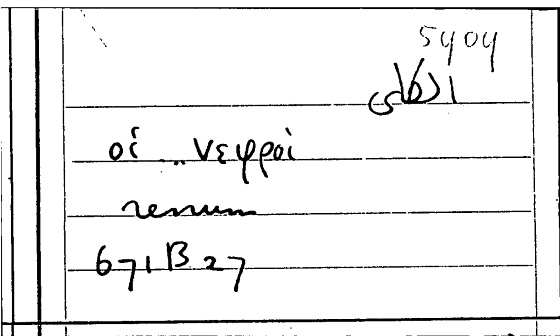 5404
الكلى
οἱ .. νεφροί
renum
671B27